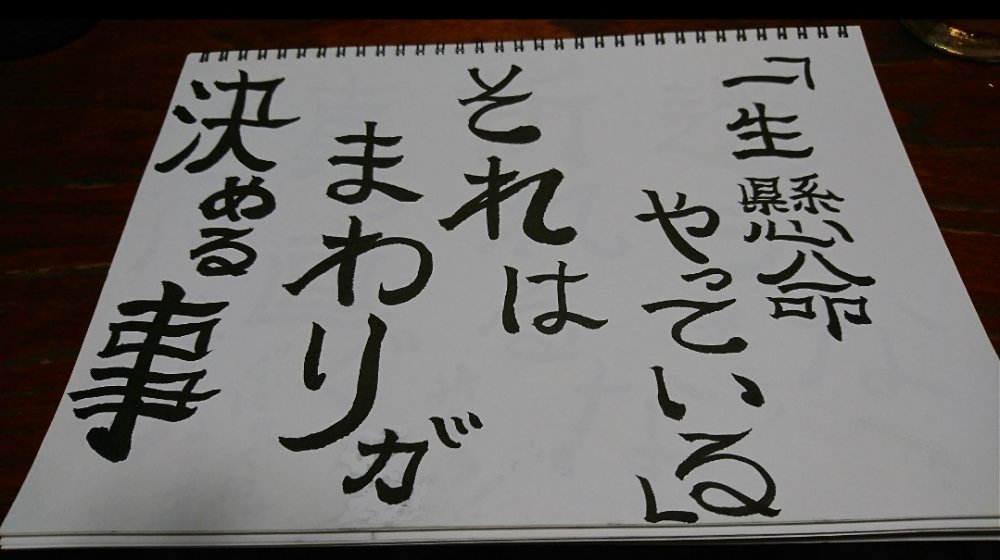 「一生懸命
やっている」
それは
まわりが
決める事